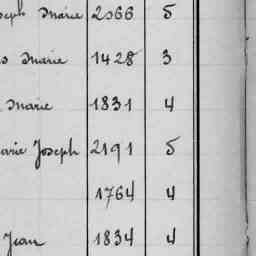 Marie 2066 5
Marie 1428 3
Marie 1831 4
Joseph 2191 5
1764 4
Jean 1834 4